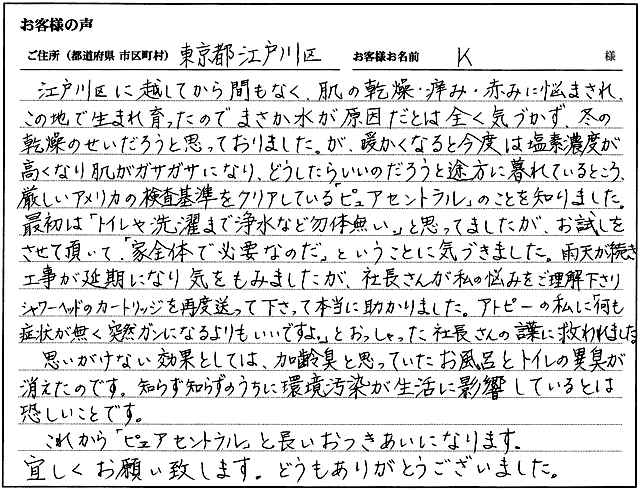 お客様の声
ご住所（都道府県 市区町村） 東京都江戸川区 お客様お名前 K 様
江戸川区に越してから間もなく、肌の乾燥・痒み・赤みに悩まされ、
この地で生まれ育ったのでまさか水が原因だとは全く気づかず、冬の
乾燥のせいだろうと思っておりました。が、暖かくなると今度は塩素濃度が
高くなり肌がガサガサになり、どうしたらいいのだろうと途方に暮れているところ、
厳しいアメリカの検査基準をクリアしている「ピュアセントラル」のことを知りました。
最初は「トイレや洗濯まで浄水など勿体無い。」と思ってましたが、お試しを
させて頂いて、「家全体で必要なのだ。」ということに気づきました。雨天が続き
工事が延期になり気をもみましたが、社長さんが私の悩みをご理解下さり
シャワーヘッドのカートリッジを再度送って下さって本当に助かりました。アトピーの私に「何も
症状が無く突然ガンになるよりもいいですよ。」とおっしゃった社長さんの言葉に救われました
思いがけない効果としては、加齢臭と思っていたお風呂とトイレの異臭が
消えたのです。知らず知らずのうちに環境汚染が生活に影響しているとは
恐しいことです。
これから「ピュアセントラル」と長いおつきあいになります。
宜しくお願い致します。どうもありがとうございました。